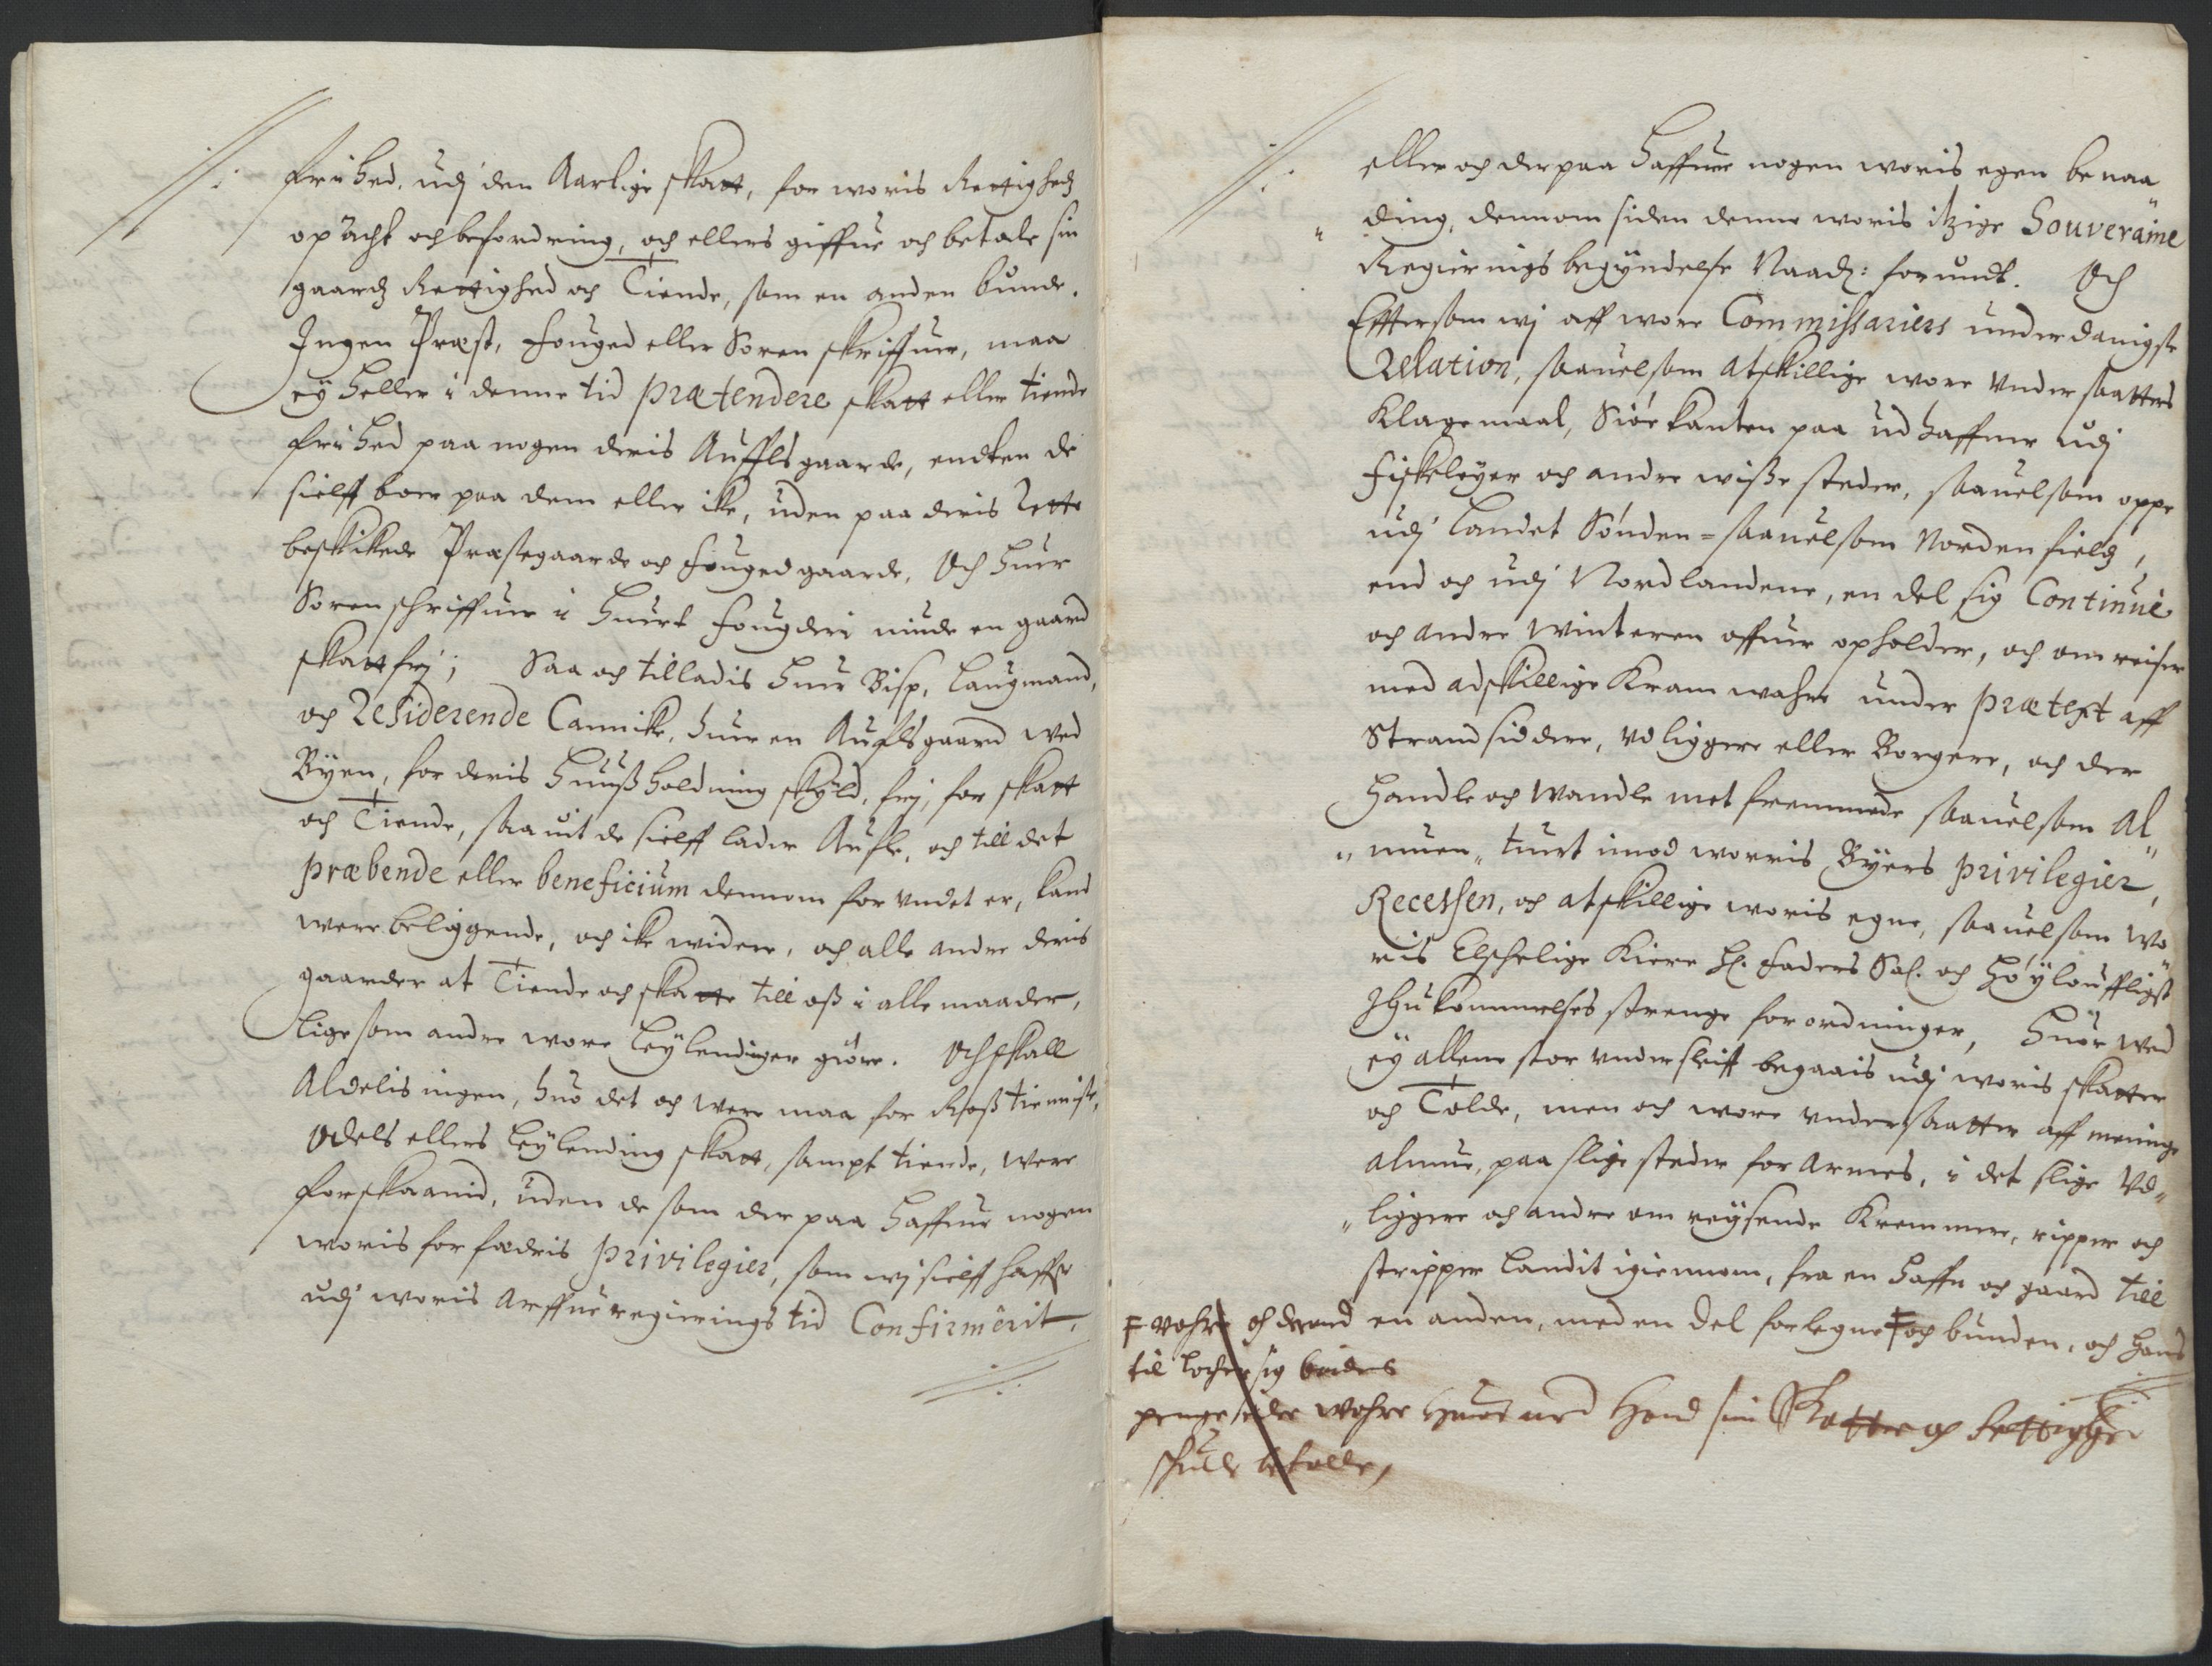 friihed, udj den Aarlige skatt, for woris Rettigheds
opächt och befordring, och ellers giffue och betale sin
gaards Rettighed och Tiende, som en anden bunde.
Ingen Præst, fouged eller Soren skriffuer, maa
eÿ heller i denne tid prætendere skatt eller tiende
friihed paa nogen deris Aufflsgaarde, endten de
sielff boer paa dem eller ike, uden paa deris Rette
beskikede Præstegaarde och fougedgaarde, Och huer
Soren schriffuer i huert fougderi niude en gaard
skatt frj; Saa och tilladis huer Bisp, Laugmand,
och Residerende Cannike, huer en Auflsgaard wed
Bÿen, for deris huußholdning skÿld, frj, for skatt
och Tiende, saauit de sielff lader Aufle, och till det
præbende eller beneficium dennom forvndet er, kand
were beliggende, och ike widere, och alle andre deris
gaarder at Tiende och skatte till oß i alle maader,
lige som andre wore Leÿlendinger giöre. Och skall
Aldelis ingen, huo det och were maa for Roßtienniste,
Odels ellers Leÿlending skatt, sampt tiende, were
forskaanid, uden de som der paa haffuer nogen
woris forfædris privilegier, som wj sielff haffr
udj woris Arffue regierings tid Confirmerit,
eller och derpaa haffuer nogen woris egen benaa
ding, dennom siden denne woris itzige Souveraine
Regierings begÿndelse Naadz: forundt. Och
Efftersom wj aff wore Commissariers underdanigste
Relation, saauelsom atskillige wore vndersaatters
Klagemaal, Siöe kanten paa ud haffuer udj
fiskeleÿer och andre wiße steder, saauelsom oppe
udj Landet Sönden= saauelsom Norden fields,
end och udj Nordlandene, en del sig Continue
och andre Winteren offuer opholder, och omreiser
med adskillige Kram wahre under prætext aff
Strandsiddere, vdliggere eller Borgere, och der
handle och wandle met fremmede saauelsom Al
muen, tuert imod worris Bÿers privilegier,
Recessen, och atskillige woris egne, saauelsom wo
ris Elschelige Kiere H. faders Sal. och höÿlouffligst
Ihukommelses strenge forordninger, huor wed
eÿ allene stor vnderslæff begaais udj woris skatter
och Tolde, men och wore vndersaatter aff menige
almue, paa slige steder for Armes, i det slige vd
liggere och andre om reÿsende Kremmere, ripper och
stripper Landit igiennem, fra en haffn och gaard till
en anden, med en del forlegne F och bunden, och hans
F wahre och
til locher sig
penge eller wahre huor med hand sin Skatter och Rettighed
skulle betalle,